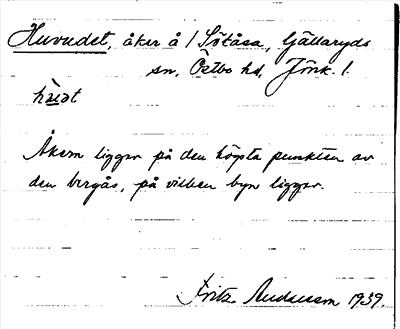 Huvudet, åker å 1 Sötåsa, Gällaryds
sn, Östbo hd, Jönk. l.
Åkern ligger på den högsta punkten av
den bergås, på vilken byn ligger.
Fritz Andersson 1939.